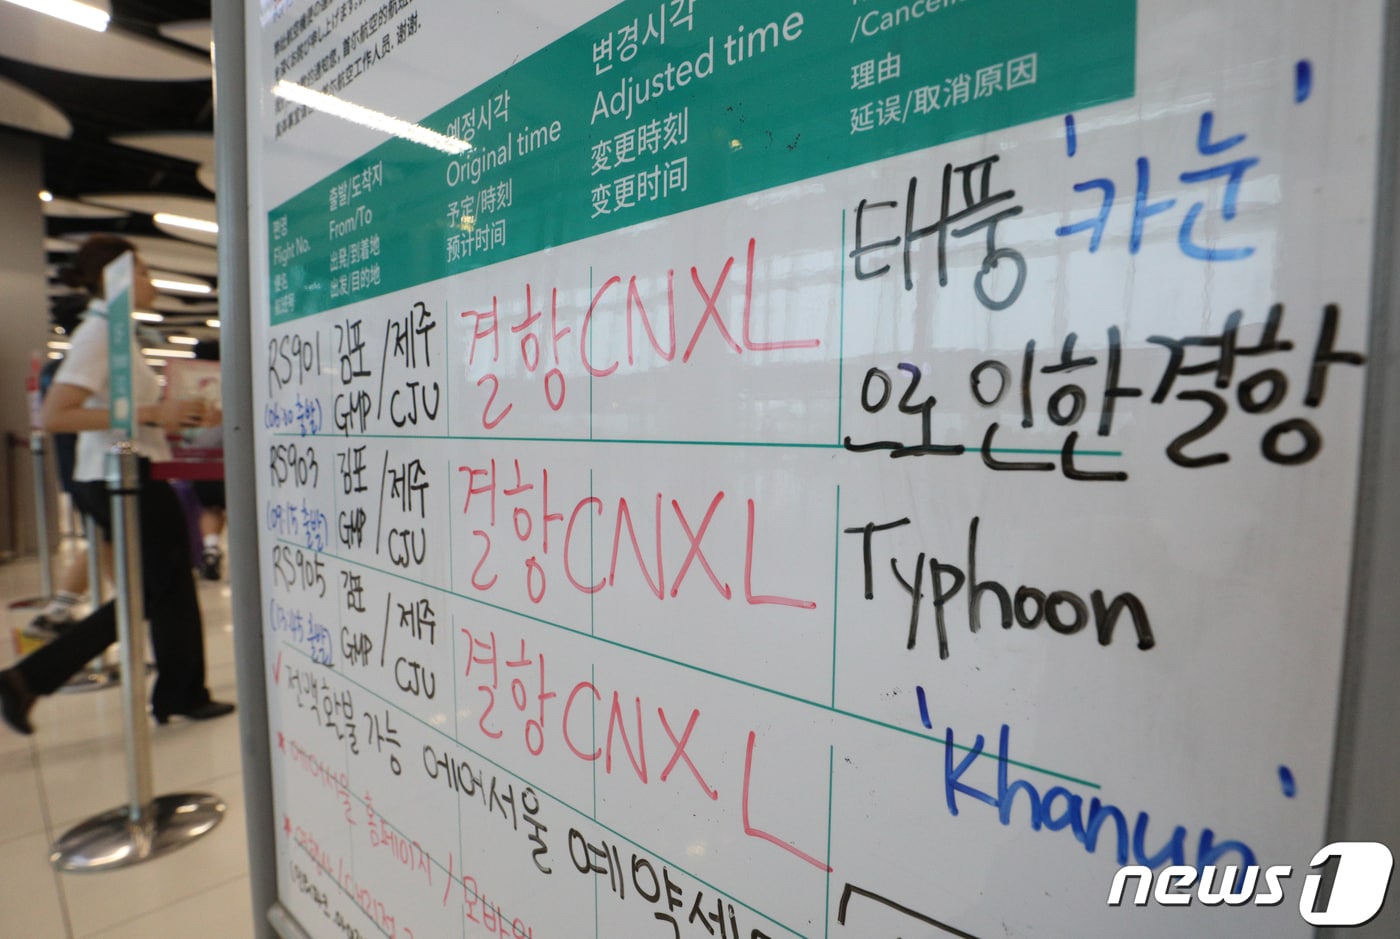 首尔航空的航班
航空工作人员. 谢谢.
편명
Flight No.
便名
출발/도착지
From/To
出発/到着地
出发/目的地
예정시각
Original time
予定/時刻
预计时间
변경시각
Adjusted time
変更時刻
变更时间
理由
延误/取消原因
RS901 김포/제주 결항 CNXL
(06:30 출발) GMP CJU
RS903 김포/제주 결항 CNXL
(09:15 출발) GMP CJU
RS905 김포/제주 결항 CNXL
(13:45 출발) GMP CJU
태풍 '카눈'
으로 인한 결항
Typhoon
'Khanun'
✓ 전액환불 가능 에어서울 예약센
* 에어서울 홈페이지 / 모바일
* 여행사/대리점
news1